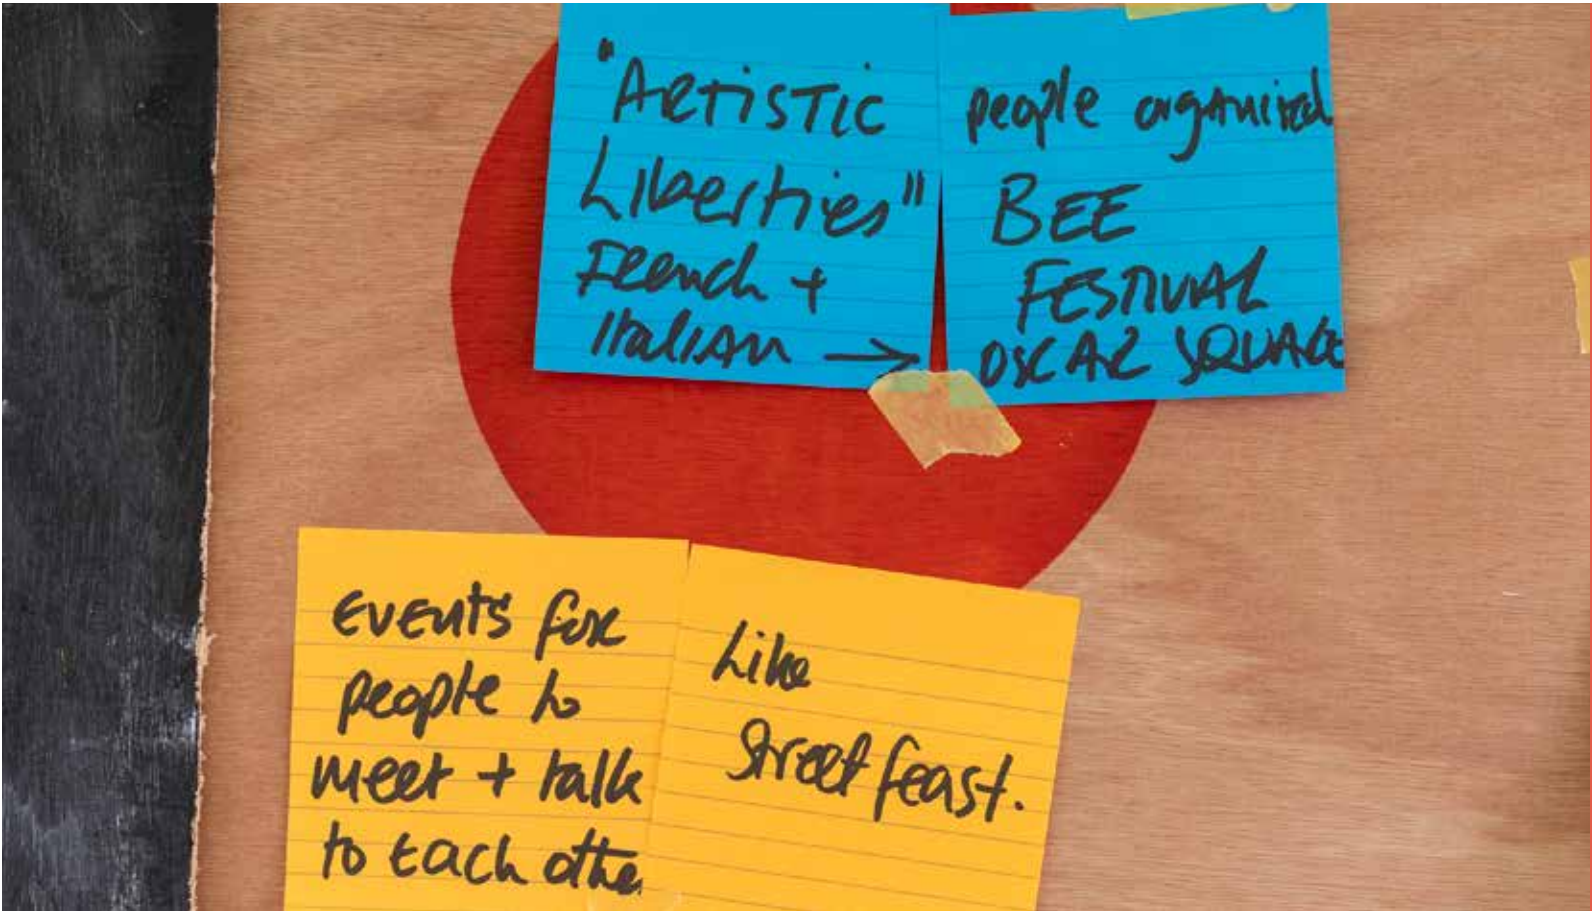 "Artistic
Liberties"
French +
Italian →
people organised
BEE
FESTIVAL
OSCAR SQUARE
Events for
people to
meet + talk
to each other
Like
Street feast.